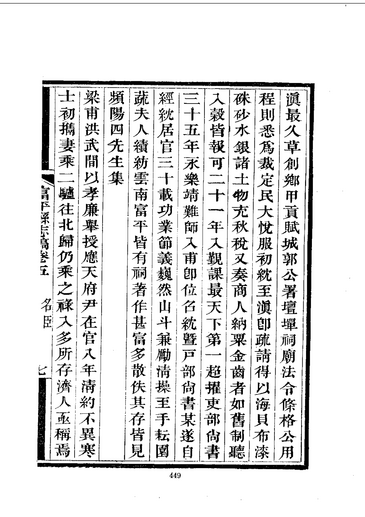 滇最久草創鄉甲貢賦城郭公署壇墠祠廟法令條格公用
程則悉爲裁定民大悅服初紞至滇卽疏請得以海貝布漆
硃砂水銀諸土物充秋稅又奏商人納粟金齒者如舊制聽
入穀皆報可二十一年入覲課最天下第一超擢吏部尙書
三十五年永樂靖難師入甫卽位名紞曁戸部尙書某遂自
經紞居官三十載功業節義巍然山斗兼勵淸操至手耘園
蔬夫人績紡雲南富平皆有祠著作甚富多散佚其存皆見
頻陽四先生集
梁甫洪武間以孝廉舉授應天府尹在官八年淸約不異寒
士初攜妻乘二驢往北歸仍乘之祿入多所存濟人亟稱焉
富平縣志稿卷五
名臣
七
449